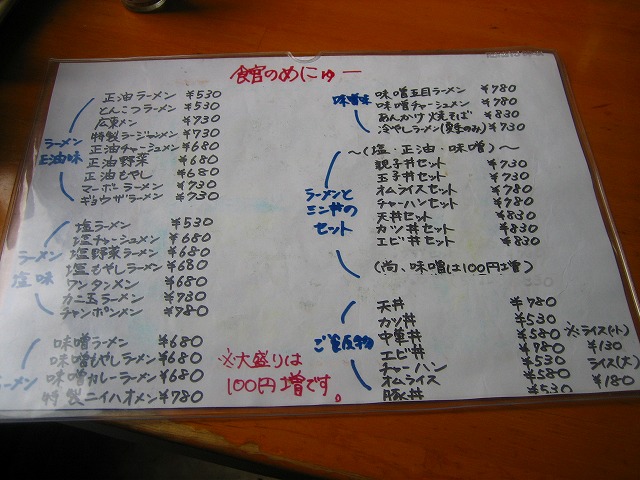 食宮のめにゅー
ラーメン
正油味
正油ラーメン ¥530
とんこつラーメン ¥530
広東メン ¥730
特製ラージャンメン ¥730
正油チャーシュメン ¥680
正油野菜 ¥680
正油もやし ¥680
マーボーラーメン ¥730
ギョウザラーメン ¥730
ラーメン
塩味
塩ラーメン ¥530
塩チャーシュメン ¥680
塩野菜ラーメン ¥680
塩もやしラーメン ¥680
ワンタンメン ¥680
カニ玉ラーメン ¥730
チャンポンメン ¥780
ラーメン
味噌ラーメン ¥680
味噌もやしラーメン ¥680
味噌カレーラーメン ¥680
特製ニイハオメン ¥780
※大盛りは
100円増です。
味噌味
味噌五目ラーメン ¥780
味噌チャーシュメン ¥780
あんかけ焼そば ¥830
冷やしラーメン(夏季のみ) ¥730
ラーメンと
ミニ丼の
セット
〜(塩・正油・味噌)〜
親子丼セット ¥730
玉子丼セット ¥730
オムライスセット ¥780
チャーハンセット ¥780
天丼セット ¥830
カツ丼セット ¥830
エビ丼セット ¥830
(尚、味噌は100円増)
ご飯物
天丼 ¥780
カツ丼 ¥530
中華丼 ¥580
エビ丼 ¥780
チャーハン ¥530
オムライス ¥580
豚丼 ¥530
※ライス(小)
¥130
ライス(大)
¥180